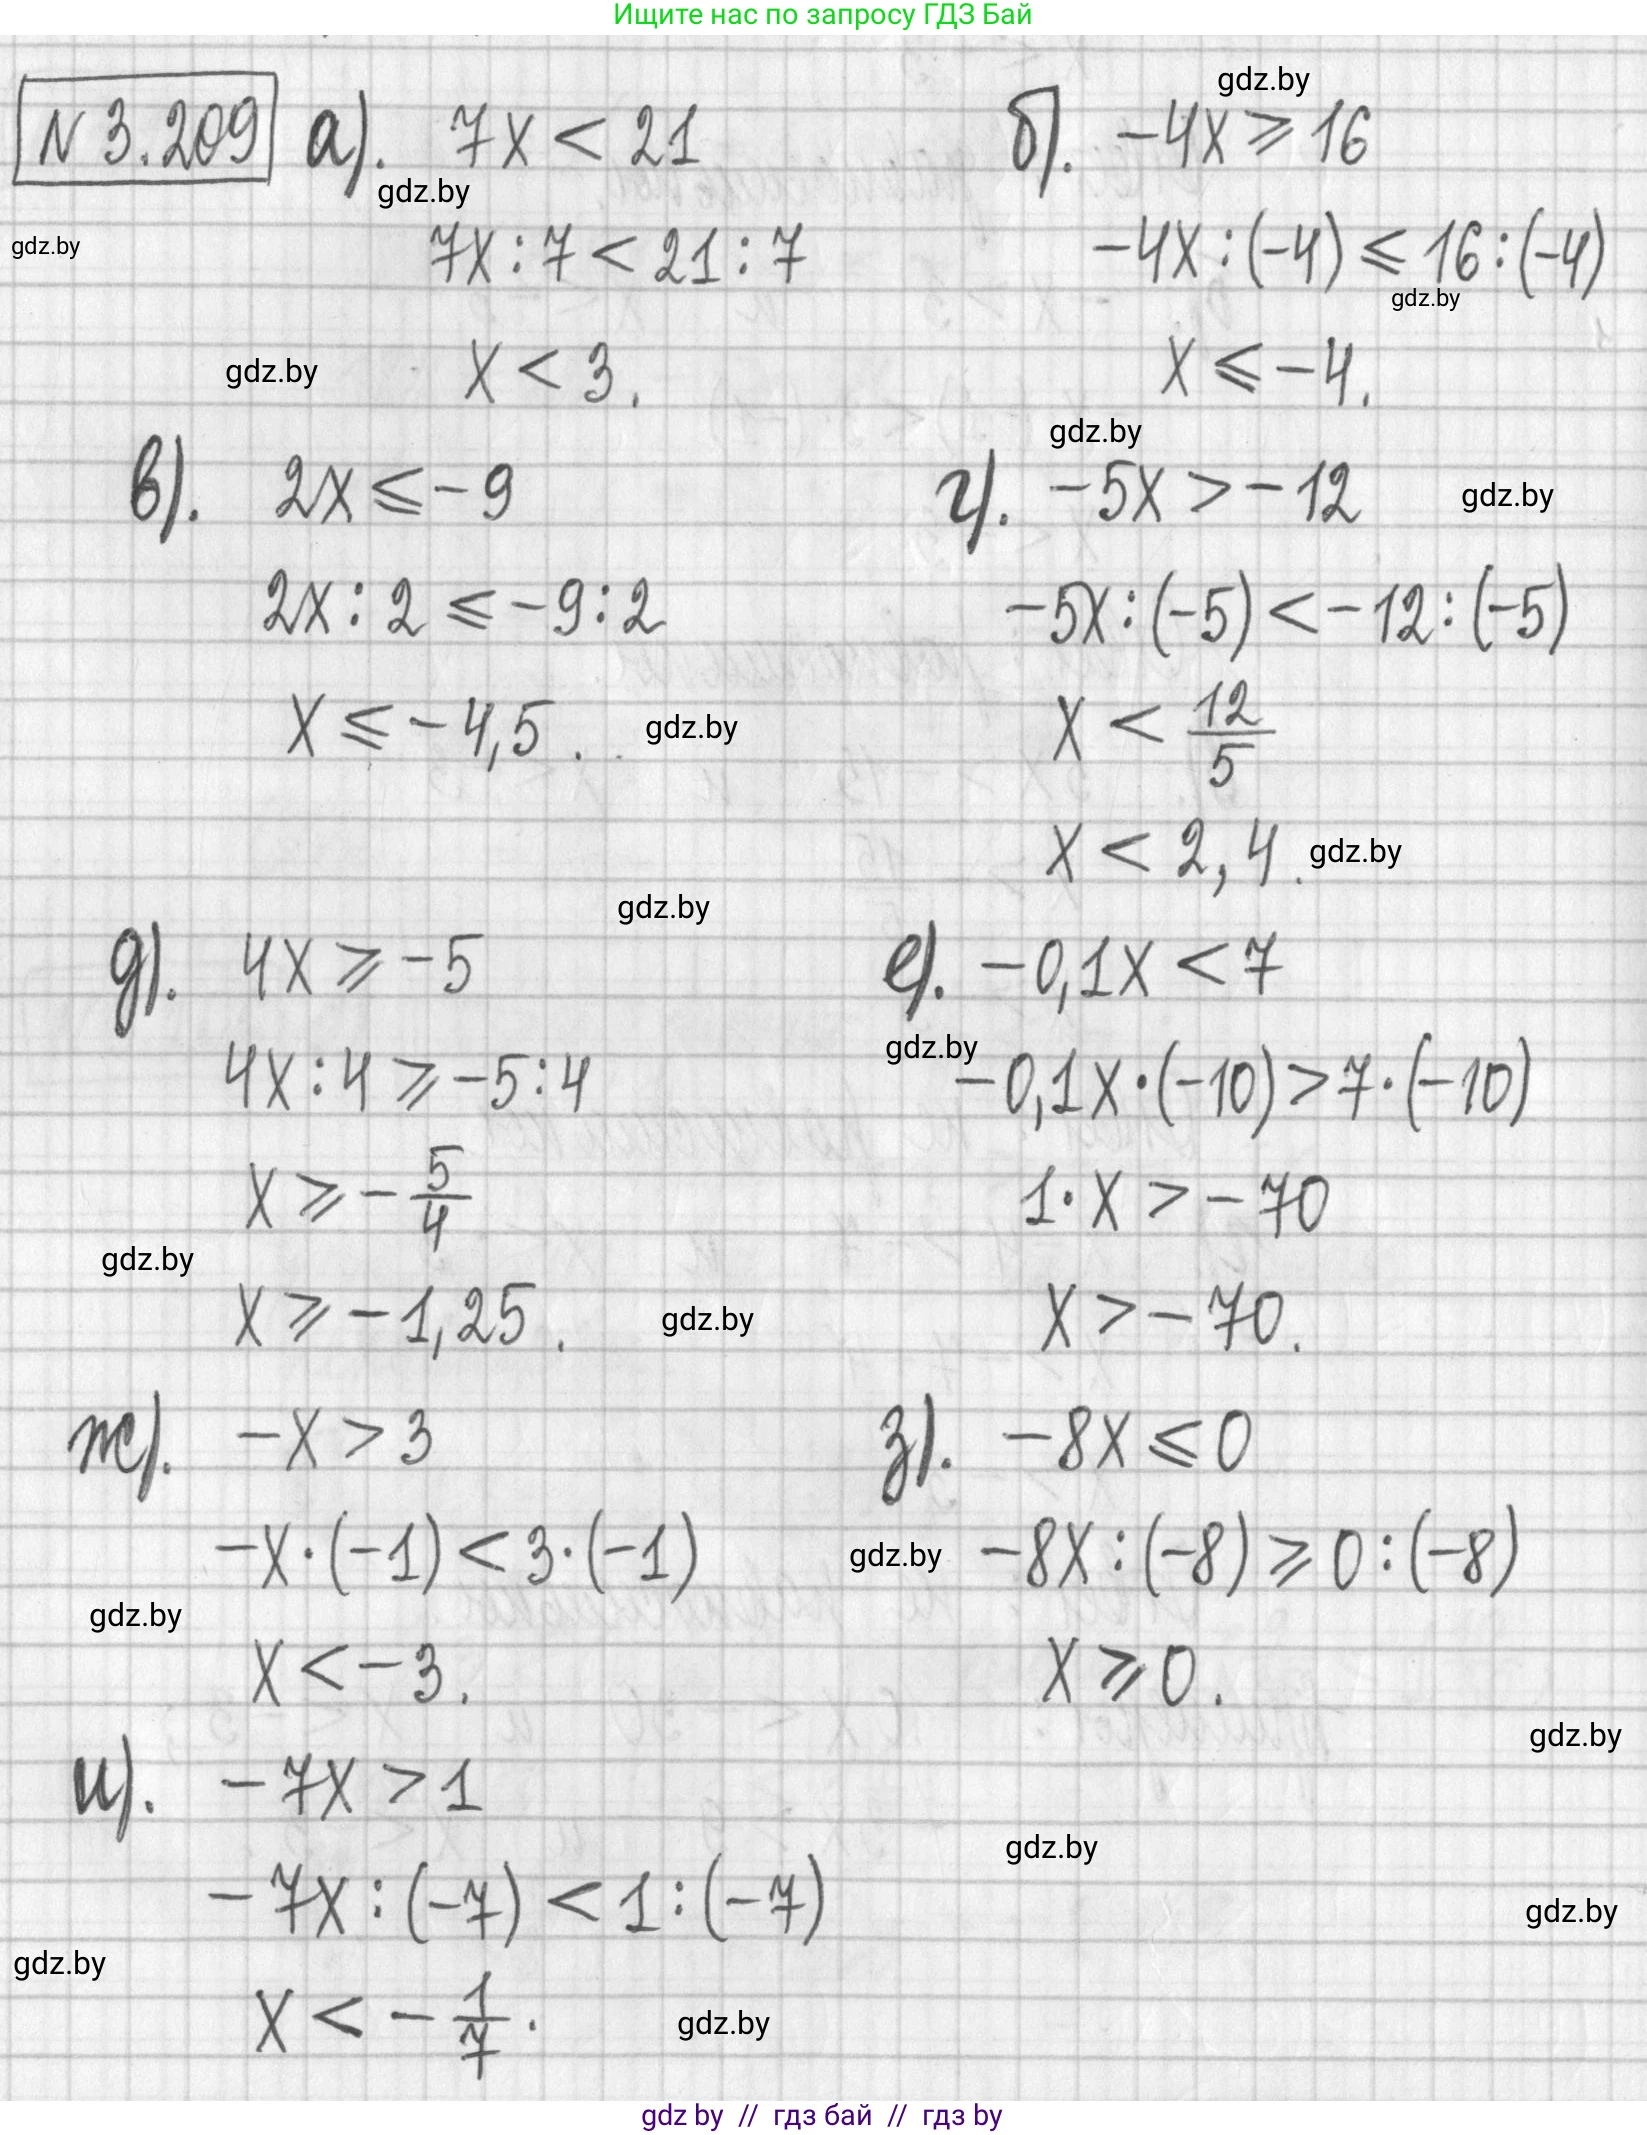 Ищите нас по запросу ГДЗ Бай
gdz.by
N 3.209 а). 7x < 21
б). -4x ⩾ 16
gdz.by
gdz.by
7x : 7 < 21 : 7
-4x : (-4) ⩽ 16 : (-4)
gdz.by
gdz.by
x < 3.
x ⩽ -4.
gdz.by
в). 2x ⩽ -9
г). -5x > -12
gdz.by
2x : 2 ⩽ -9 : 2
-5x : (-5) < -12 : (-5)
x ⩽ -4,5.
gdz.by
x < 12/5
x < 2,4.
gdz.by
gdz.by
д). 4x ⩾ -5
е). -0,1x < 7
gdz.by
4x : 4 ⩾ -5 : 4
-0,1x · (-10) > 7 · (-10)
x ⩾ - 5/4
1 · x > -70
gdz.by
x ⩾ -1,25.
gdz.by
x > -70.
ж). -x > 3
з). -8x ⩽ 0
-x · (-1) < 3 · (-1)
gdz.by
-8x : (-8) ⩾ 0 : (-8)
gdz.by
x < -3.
x ⩾ 0.
gdz.by
и). -7x > 1
gdz.by
-7x : (-7) < 1 : (-7)
gdz.by
gdz.by
x < - 1/7.
gdz.by
gdz by // гдз бай // гдз by